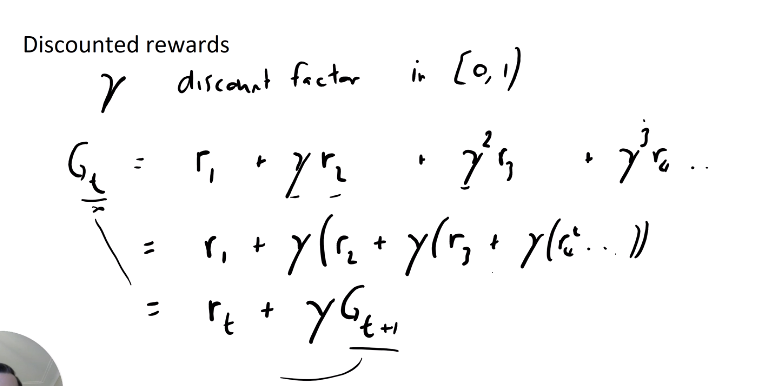 Discounted rewards
γ discount factor in [0, 1)
G_t = r_1 + γ r_2 + γ^2 r_3 + γ^3 r_4 ..
= r_1 + γ(r_2 + γ(r_3 + γ(r_4 ... ))
= r_t + γ G_{t+1}